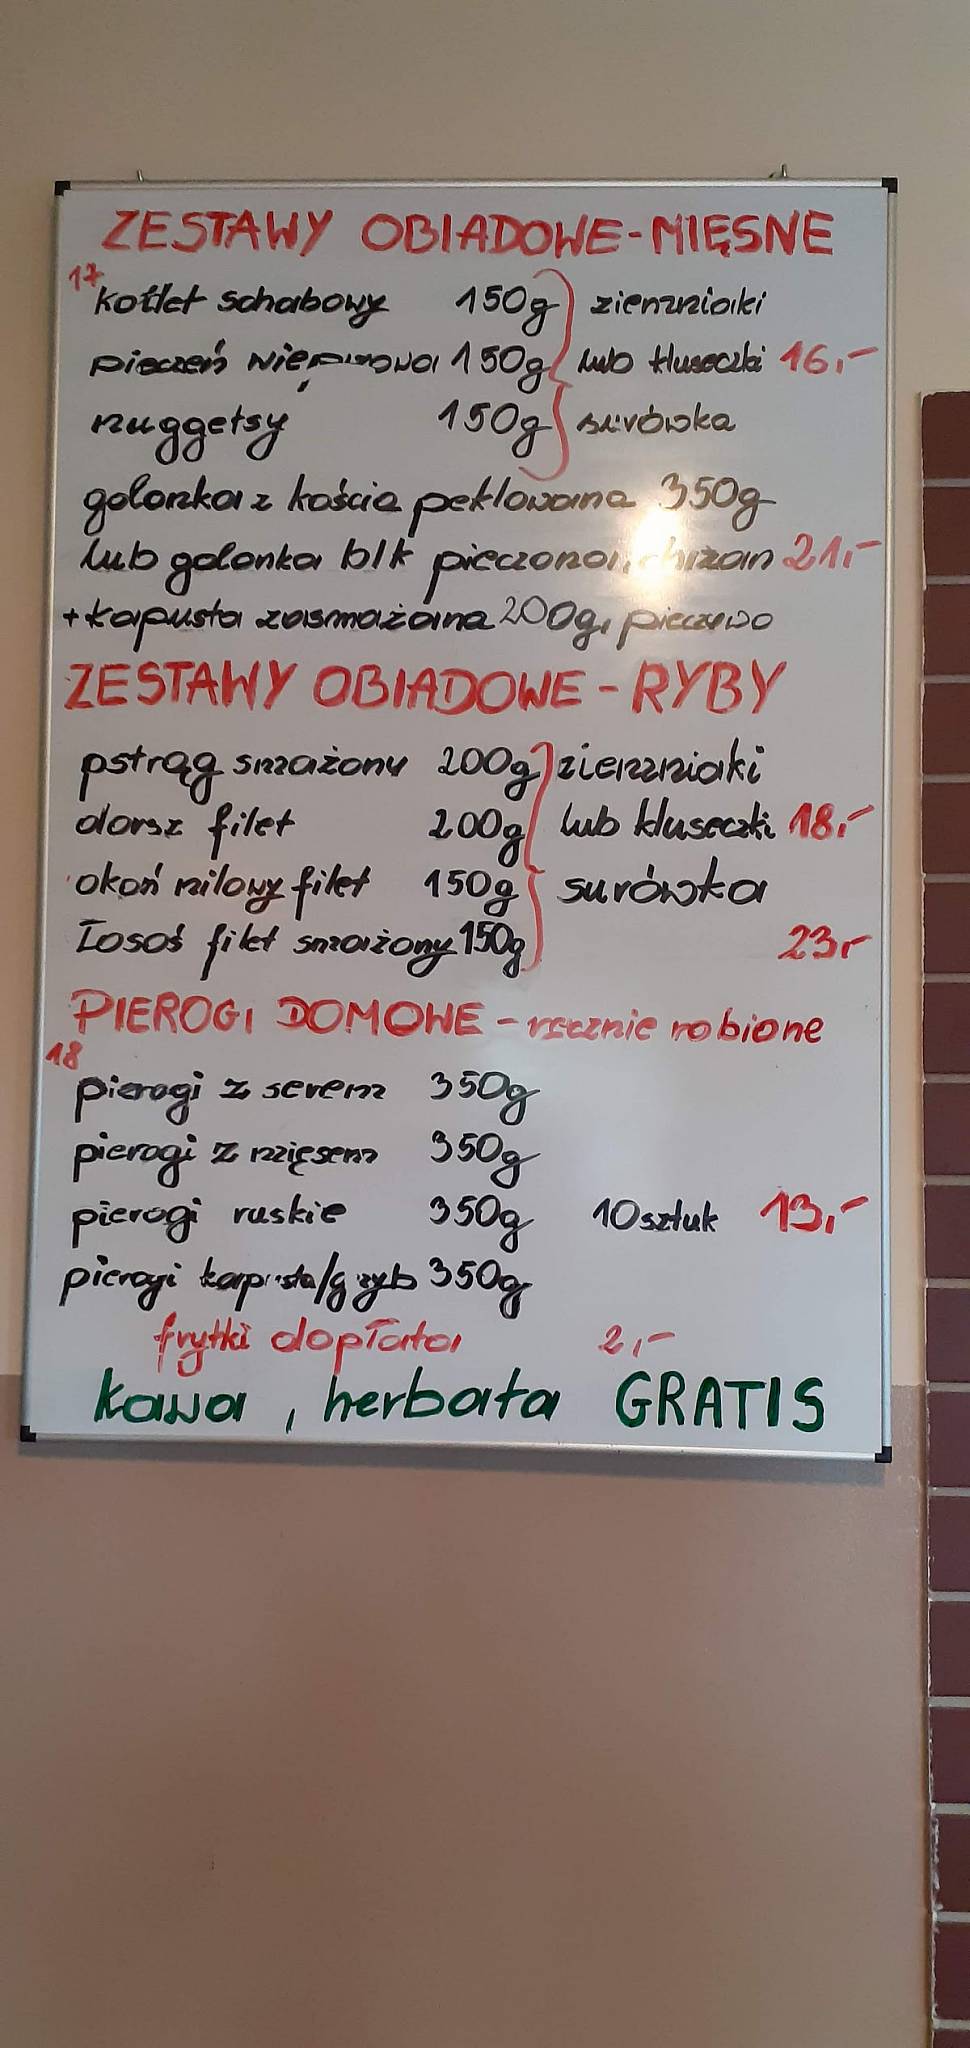 ZESTAWY OBIADOWE-MIĘSNE
17
kotlet schabowy 150g ziemniaki
pieczeń wieprzowa 150g lub kluseczki 16,-
nuggetsy 150g surówka
golonka z kością peklowana 350g
lub golonka b/k pieczona, chrzan 21,-
+kapusta zasmażana 200g, pieczywo
ZESTAWY OBIADOWE - RYBY
pstrąg smażony 200g ziemniaki
dorsz filet 200g lub kluseczki 18,-
okoń nilowy filet 150g surówka
Łosoś filet smażony 150g 23,-
PIEROGI DOMOWE - ręcznie robione
18
pierogi z serem 350g
pierogi z mięsem 350g
pierogi ruskie 350g 10sztuk 13,-
pierogi kapusta/grzyb 350g
frytki dopłata 2,-
kawa, herbata GRATIS